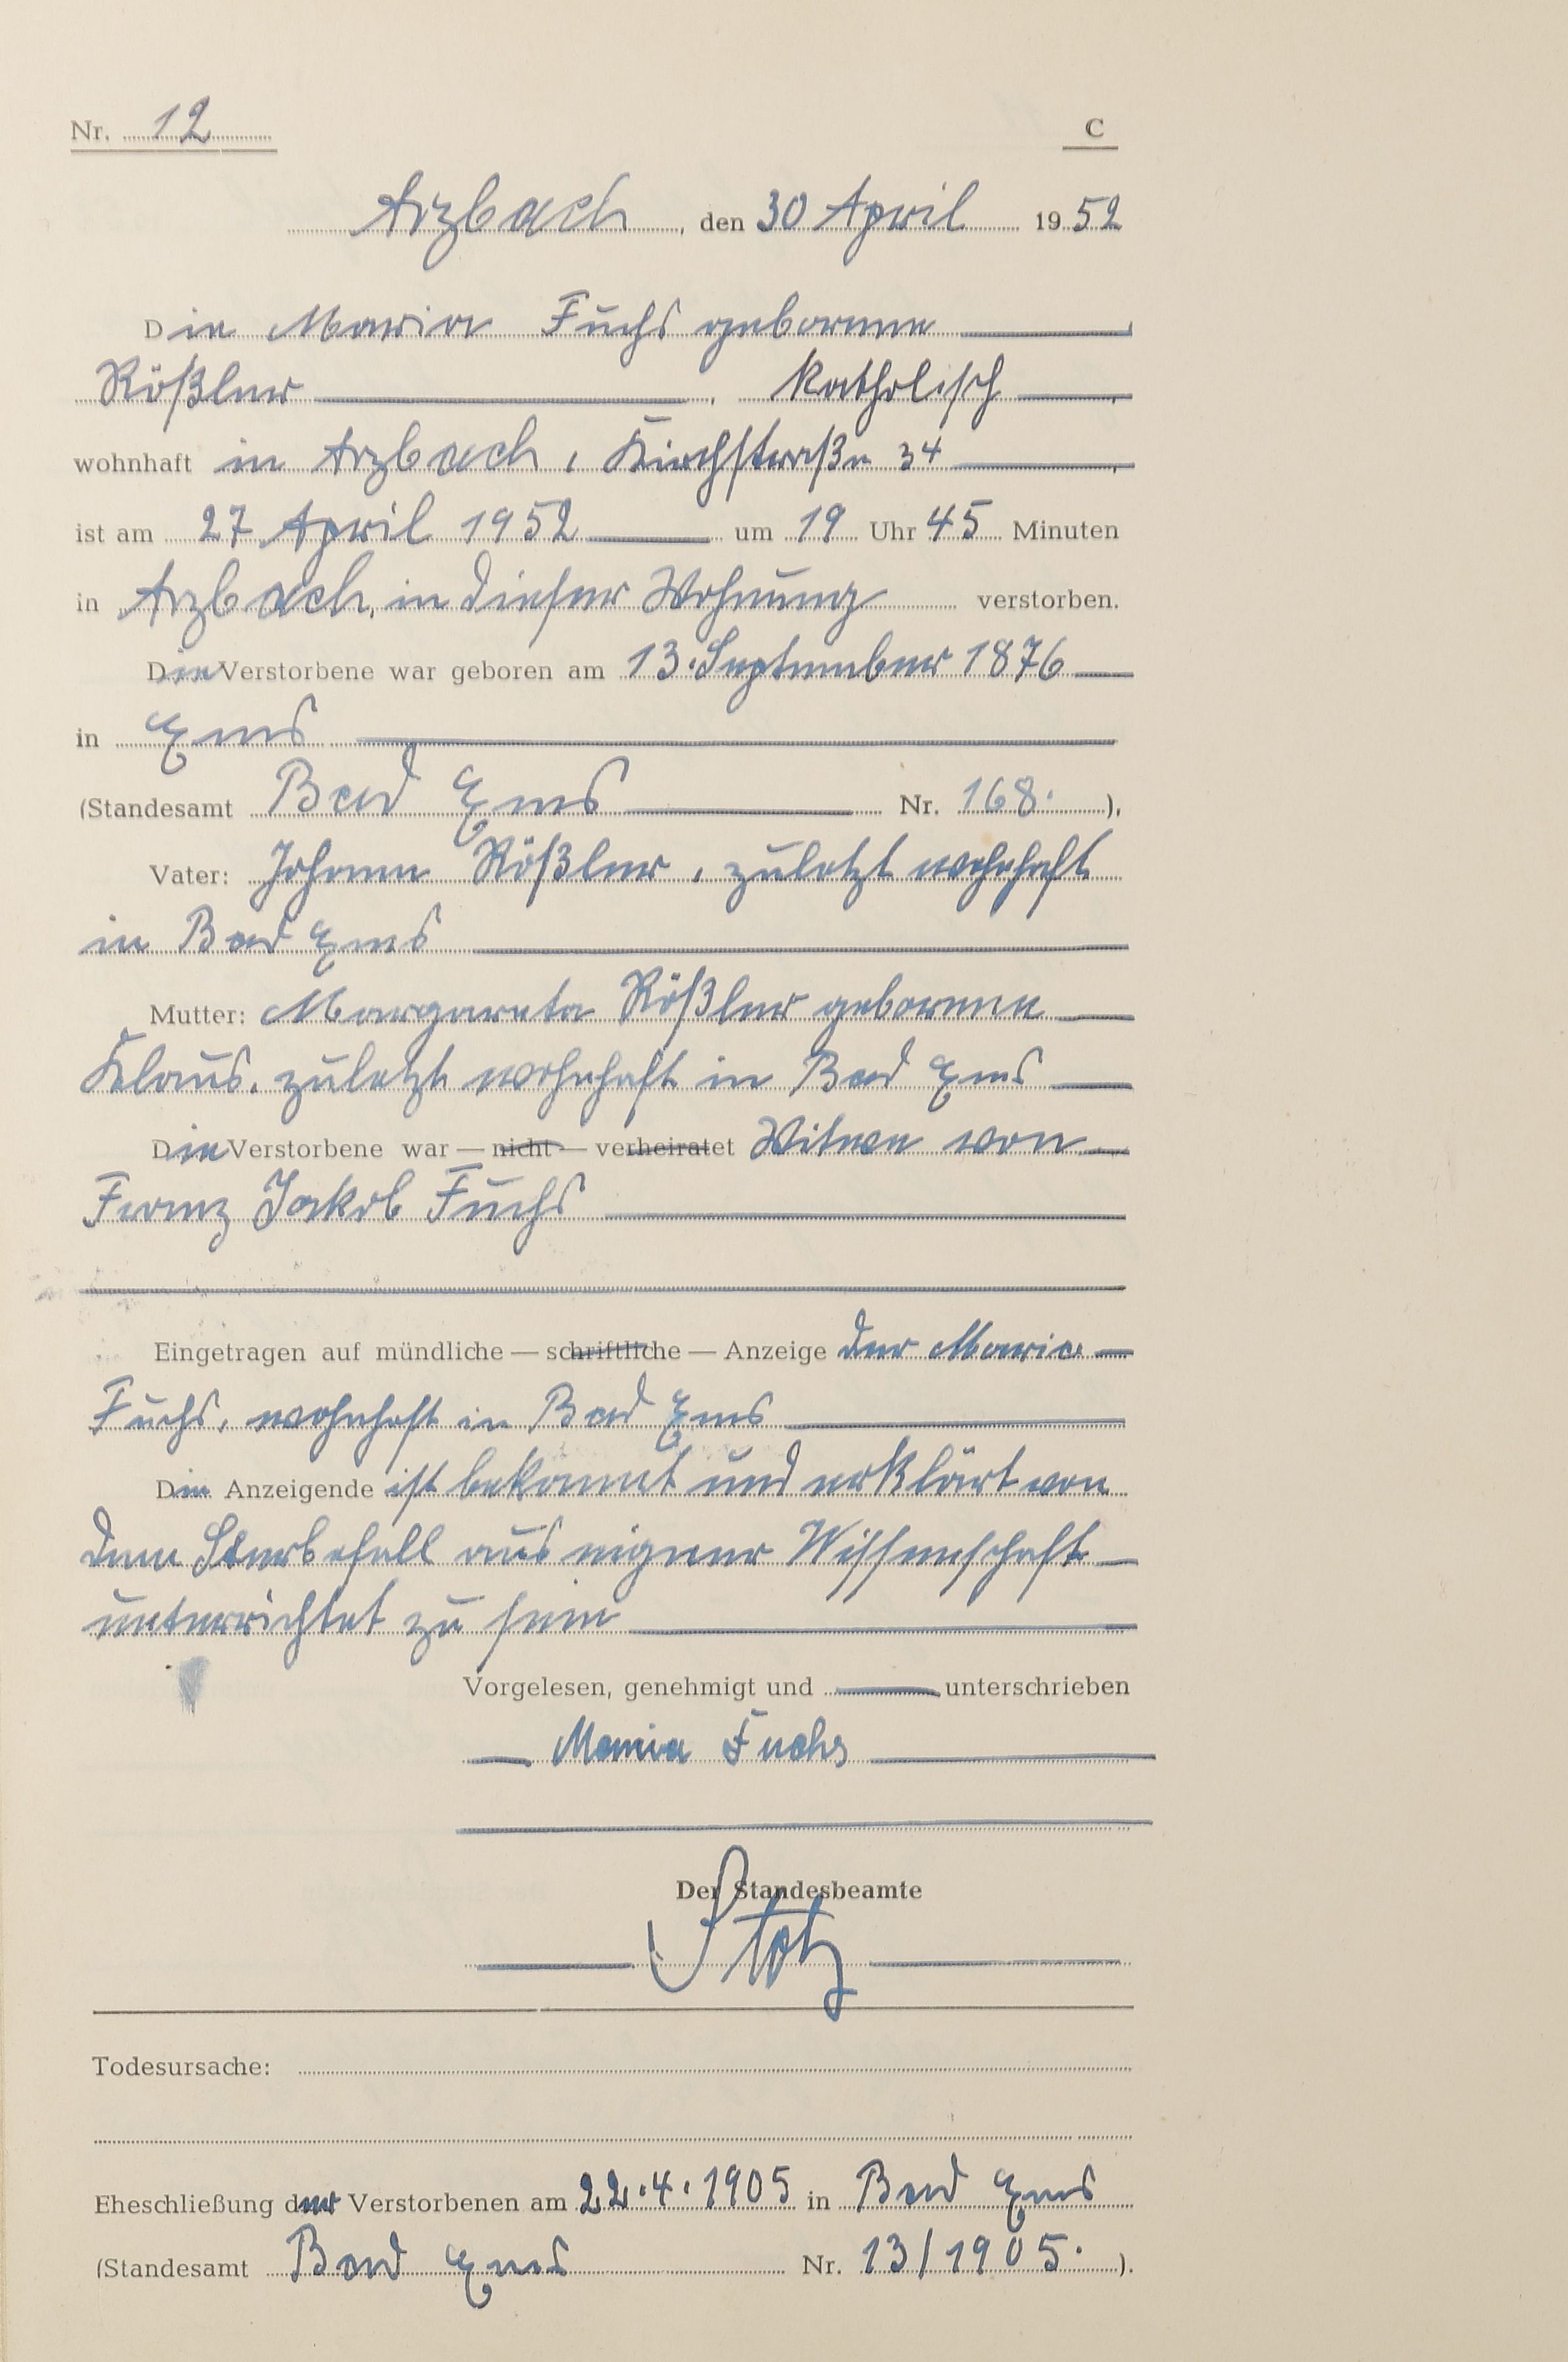 Nr. 12 C
Arzbach, den 30 April 1952
Die Maria Fuchs geborene
Rößler, katholisch,
wohnhaft in Arzbach, Kirchstraße 34,
ist am 27 April 1952 um 19 Uhr 45 Minuten
in Arzbach, in dieser Wohnung verstorben.
Die Verstorbene war geboren am 13. September 1876
in Ems
(Standesamt Bad Ems Nr. 168.).
Vater: Johann Rößler, zuletzt wohnhaft
in Bad Ems
Mutter: Margareta Rößler geborene
Klaus, zuletzt wohnhaft in Bad Ems
Die Verstorbene war — nicht — verheiratet Witwe von
Franz Jakob Fuchs
Eingetragen auf mündliche — schriftliche — Anzeige der Maria
Fuchs, wohnhaft in Bad Ems
Die Anzeigende ist bekannt und erklärt von
dem Sterbefall aus eigener Wissenschaft
unterrichtet zu sein
Vorgelesen, genehmigt und unterschrieben
Maria Fuchs
Der Standesbeamte
Stotz
Todesursache:
Eheschließung der Verstorbenen am 22.4.1905 in Bad Ems
(Standesamt Bad Ems Nr. 13/1905.).